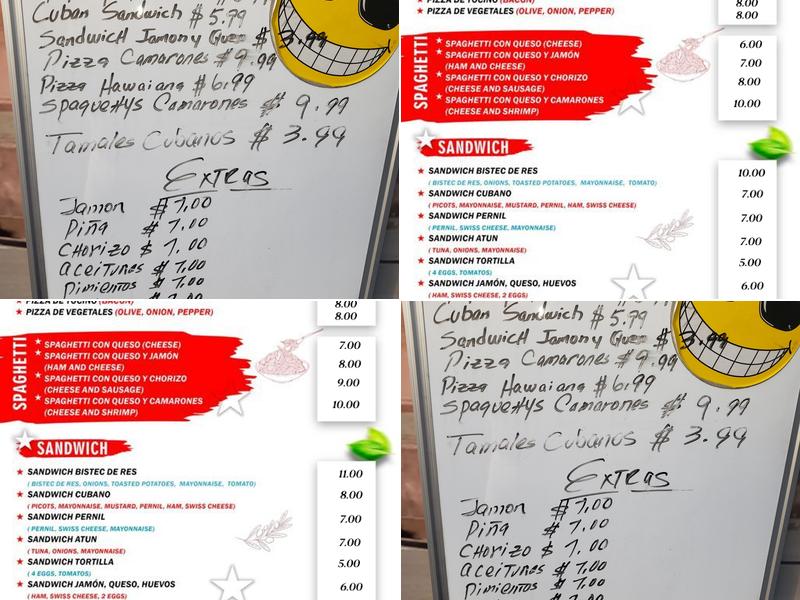 Cuban Sandwich $ 5.99
Sandwich Jamon y Queso $ 3.99
Pizza Camarones $ 9.99
Pizza Hawaiana $ 6.99
Spaguettys Camarones $ 9.99
Tamales Cubanos $ 3.99
Extras
Jamon $ 1,00
Piña $ 1,00
CHorizo $ 1.00
aceitunas $ 1,00
Pimientos $ 1,00
8.00
PIZZA DE TOCINO (BACON)
PIZZA DE VEGETALES (OLIVE, ONION, PEPPER) 8.00
SPAGHETTI
SPAGHETTI CON QUESO (CHEESE) 6.00
SPAGHETTI CON QUESO Y JAMÓN 7.00
(HAM AND CHEESE)
SPAGHETTI CON QUESO Y CHORIZO 8.00
(CHEESE AND SAUSAGE)
SPAGHETTI CON QUESO Y CAMARONES 10.00
(CHEESE AND SHRIMP)
SANDWICH
SANDWICH BISTEC DE RES 10.00
( BISTEC DE RES, ONIONS, TOASTED POTATOES, MAYONNAISE, TOMATO)
SANDWICH CUBANO 7.00
( PICOTS, MAYONNAISE, MUSTARD, PERNIL, HAM, SWISS CHEESE)
SANDWICH PERNIL 7.00
( PERNIL, SWISS CHEESE, MAYONNAISE)
SANDWICH ATUN 7.00
( TUNA, ONIONS, MAYONNAISE)
SANDWICH TORTILLA 5.00
( 4 EGGS, TOMATOS)
SANDWICH JAMÓN, QUESO, HUEVOS 6.00
( HAM, SWISS CHEESE, 2 EGGS)
PIZZA DE TOCINO (BACON) 8.00
PIZZA DE VEGETALES (OLIVE, ONION, PEPPER) 8.00
SPAGHETTI
SPAGHETTI CON QUESO (CHEESE) 7.00
SPAGHETTI CON QUESO Y JAMÓN 8.00
(HAM AND CHEESE)
SPAGHETTI CON QUESO Y CHORIZO 9.00
(CHEESE AND SAUSAGE)
SPAGHETTI CON QUESO Y CAMARONES 10.00
(CHEESE AND SHRIMP)
SANDWICH
SANDWICH BISTEC DE RES 11.00
( BISTEC DE RES, ONIONS, TOASTED POTATOES, MAYONNAISE, TOMATO)
SANDWICH CUBANO 8.00
( PICOTS, MAYONNAISE, MUSTARD, PERNIL, HAM, SWISS CHEESE)
SANDWICH PERNIL 7.00
( PERNIL, SWISS CHEESE, MAYONNAISE)
SANDWICH ATUN 7.00
( TUNA, ONIONS, MAYONNAISE)
SANDWICH TORTILLA 5.00
( 4 EGGS, TOMATOS)
SANDWICH JAMÓN, QUESO, HUEVOS 6.00
( HAM, SWISS CHEESE, 2 EGGS)
Cuban Sandwich $ 5.99
Sandwich Jamon y Queso $ 3.99
Pizza Camarones $ 9.99
Pizza Hawaiana $ 6.99
Spaguettys Camarones $ 9.99
Tamales Cubanos $ 3.99
Extras
Jamon $ 1,00
Piña $ 1,00
CHorizo $ 1.00
aceitunas $ 1,00
Pimientos $ 1,00